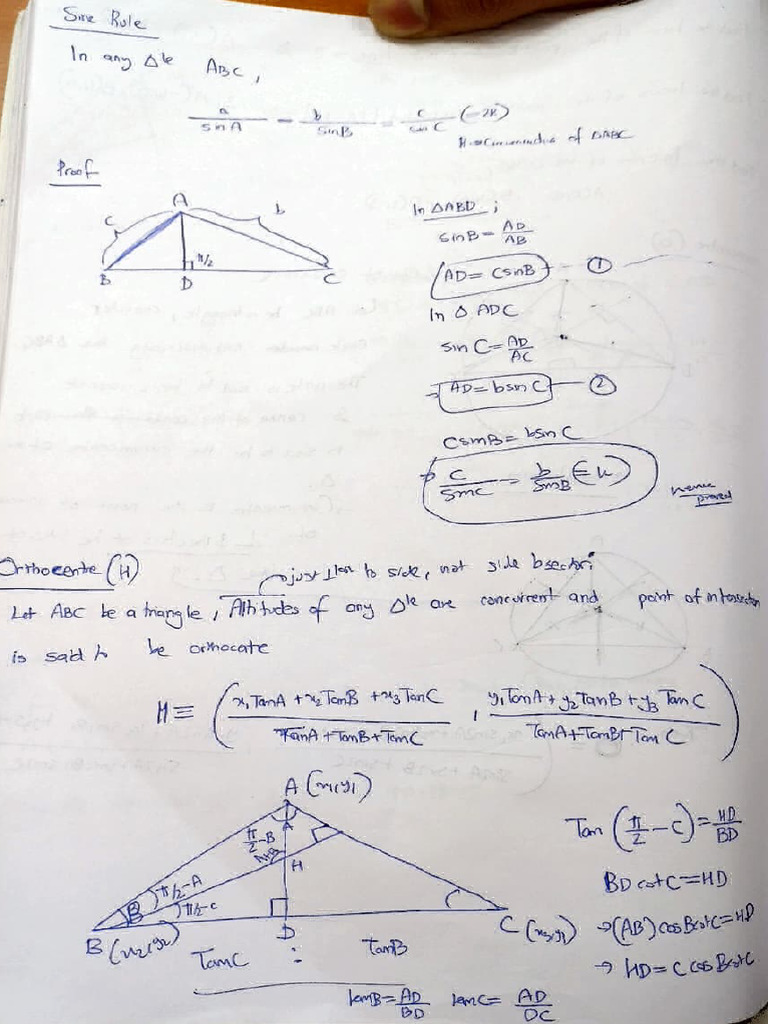 Sine Rule
In any Δle ABC,
a/sinA = b/sinB = c/sinC (=2R)
R → Circumradius of ΔABC
Proof
A
c
b
π/2
B
D
C
In ΔABD ;
sinB = AD/AB
AD = CsinB - ①
In Δ ADC
sin C = AD/AC
→ AD = bsinC - ②
CsinB = bsinC
→ c/sinC = b/sinB (=k)
Hence proved
Orthocentre (H)
just ⊥lar to side, not side bsector;
Let ABC be a triangle, Altitudes of any Δle are concurrent and point of intersection
is said to be orthocate
H ≡ ( x₁TanA + x₂TanB + x₃TanC / TanA + TanB + TanC , y₁TanA + y₂TanB + y₃TanC / TanA + TanB + TanC )
A (x₁,y₁)
π/2 - B
A
H
π/2 - A
B
π/2 - c
B (x₂,y₂)
D
C (x₃,y₃)
TanC : TanB
tanB = AD/BD tanC = AD/DC
Tan (π/2 - C) = HD/BD
BD cotC = HD
→ (AB) cosBcotC = HD
→ HD = C cosBcotC